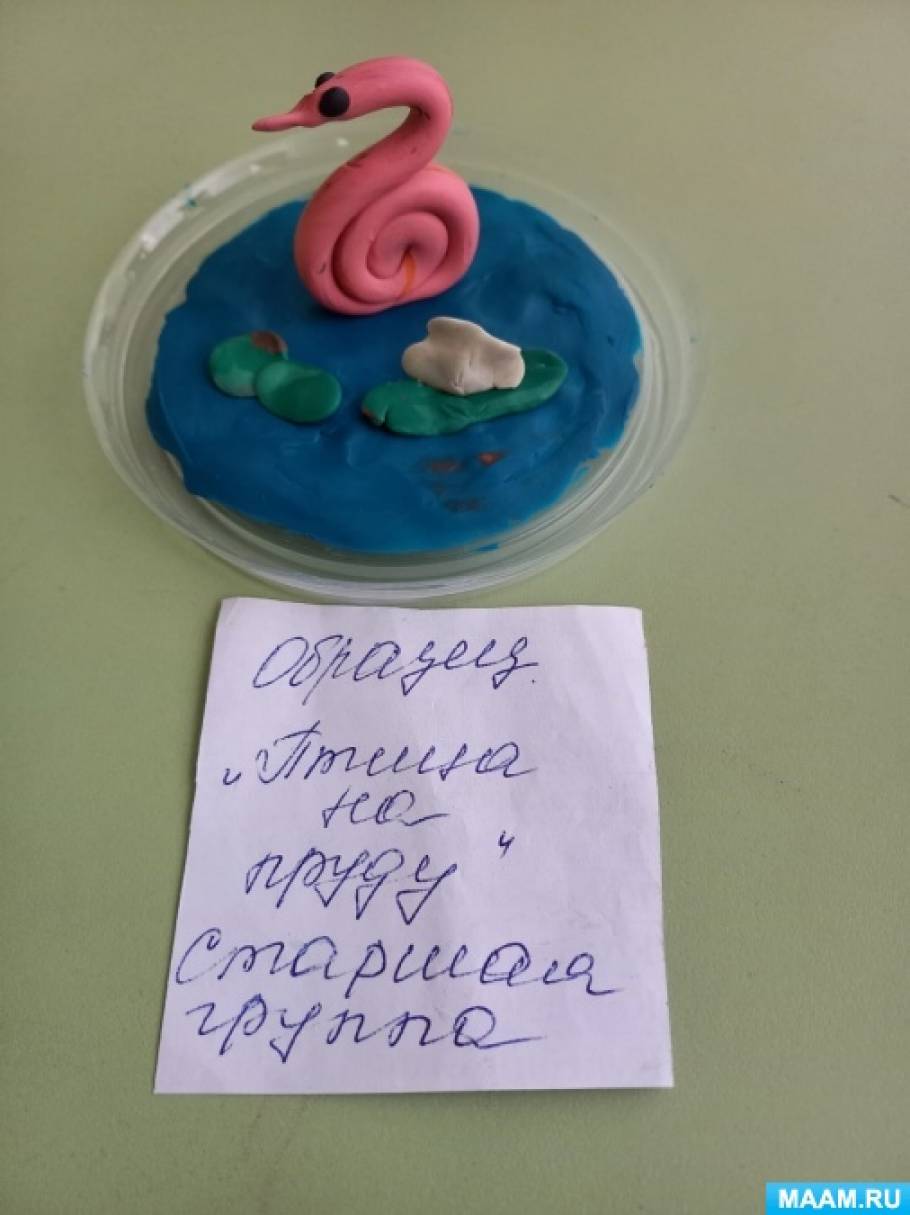 Образец.
„Птица
на
пруду"
Старшая
группа
MAAM.RU